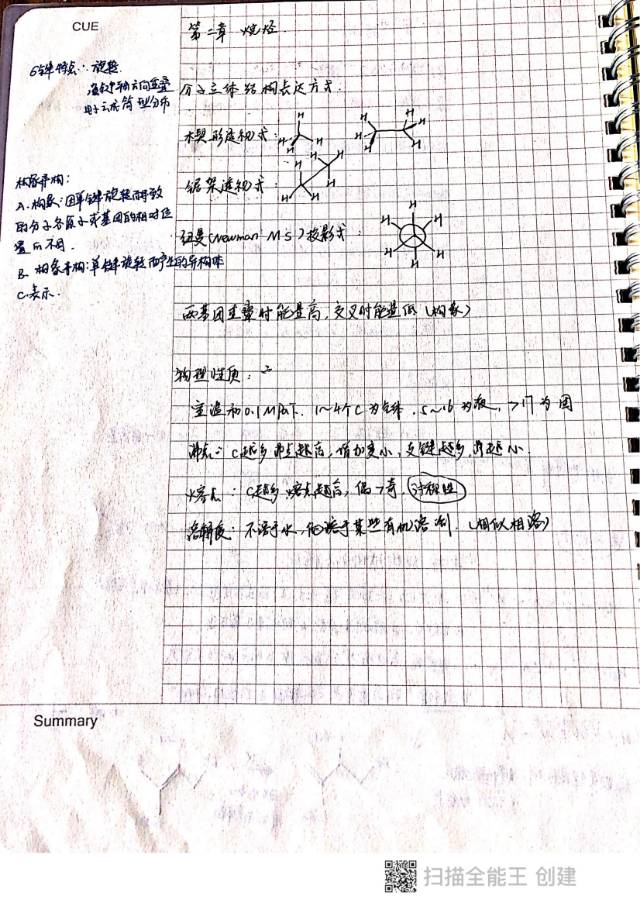 CUE
第二章 烷烃.
σ键特点: 旋转.
沿键轴方向重叠
电子云成筒型分布
分子立体结构表达方式.
木契形透视式:
H
H
H
H
H
H
H
H
H
H
锯架透视式:
H
H
H
H
H
H
构象异构:
A. 构象: 因单键旋转而导致
的分子各原子或基团的相对位
置的不同.
B. 构象异构: 单键旋转而产生的异构体
C. 表示.
纽曼(Newman M·S)投影式
H
H
H
H
H
H
两基团重叠时能量高, 交叉时能量低 (构象)
物理性质:
室温和0.1MPa下, 1~4个C为气体, 5~16为液, >17为固
沸点: C越多沸点越高, 增加变小, 支链越多, 沸越小.
熔点: C越多熔点越高, 偶>奇, 对称性
溶解度: 不溶于水, 能溶于某些有机溶剂. (相似相溶)
Summary
扫描全能王 创建